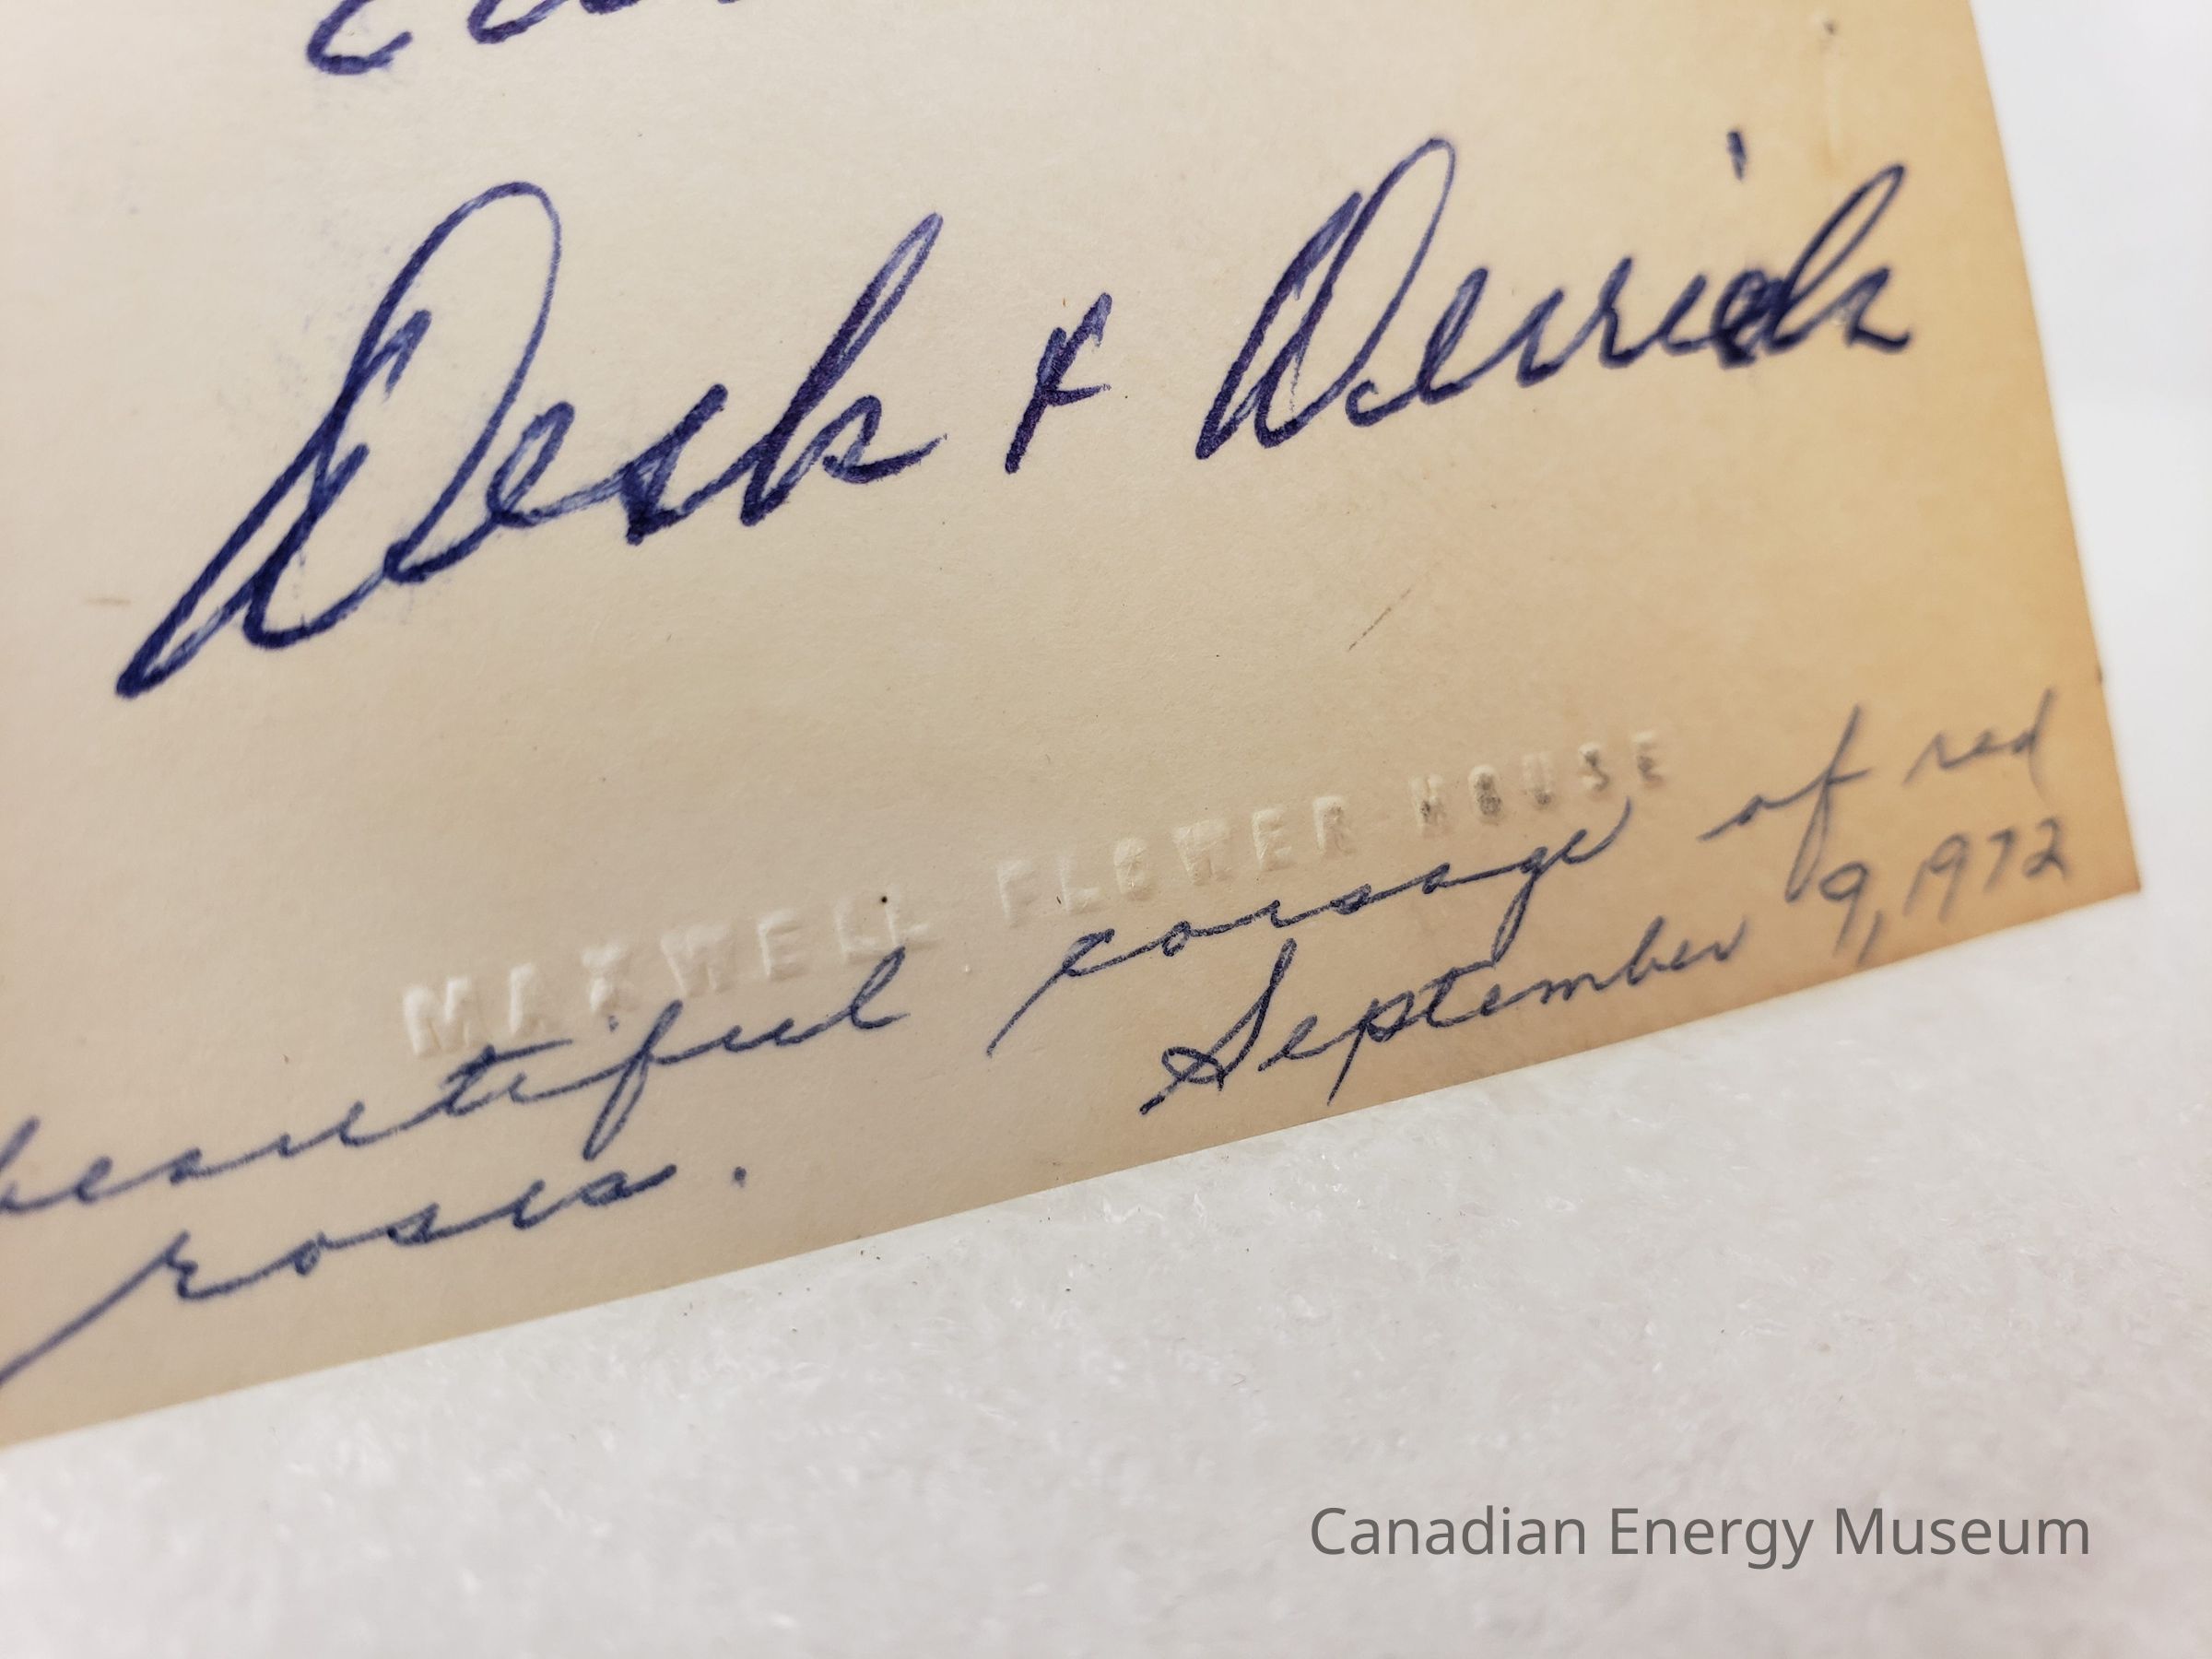 Desk & Derrick
MAXWELL FLOWER HOUSE
beautiful corsage of red
roses. September 9, 1972
Canadian Energy Museum